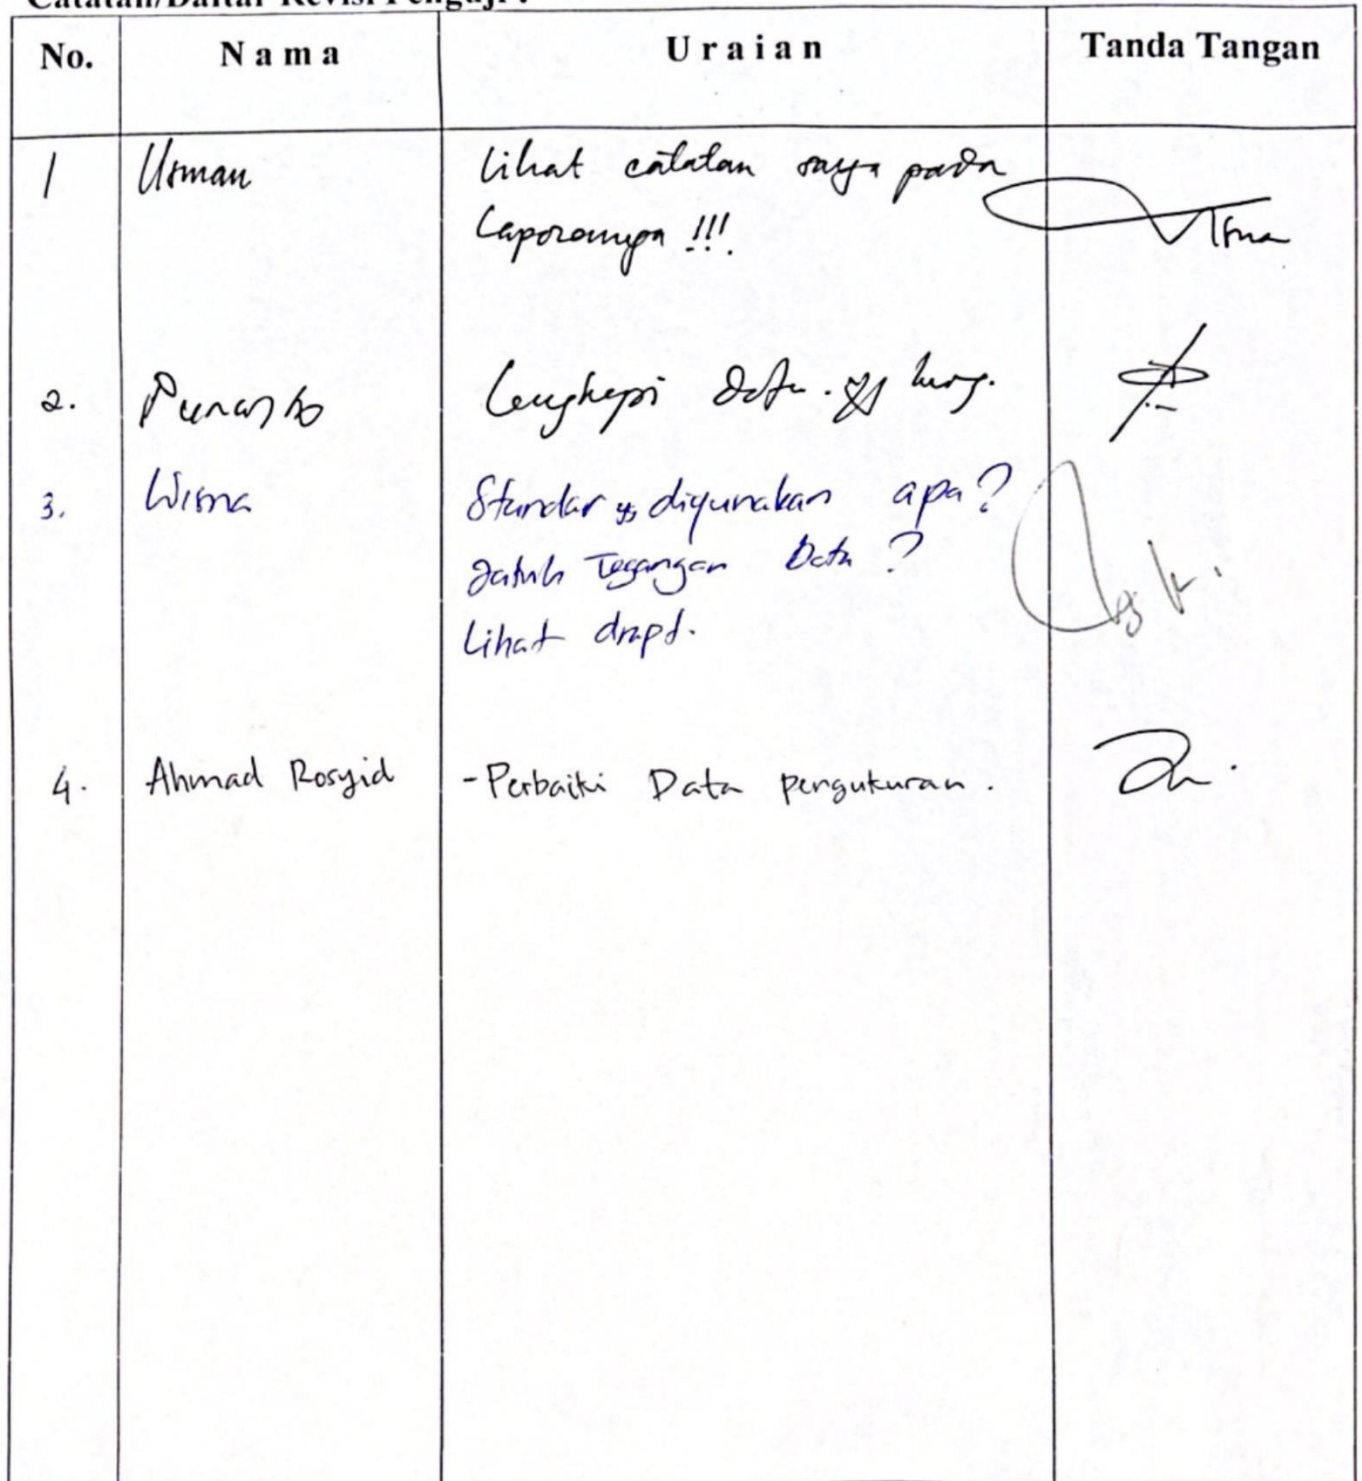 Catatan/Daftar Revisi Penguji :
No. Nama Uraian Tanda Tangan
1 Usman Lihat catatan saya pada
Laporannya !!!.
2. Purwanto Lengkapi data yg kurg.
3. Wisna Standar yg digunakan apa?
Jatuh Tegangan Data?
Lihat drapt.
4. Ahmad Rosyid - Perbaiki Data pengukuran.